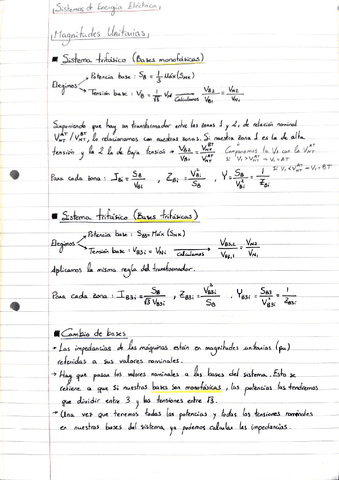 Sistemas de Energía Eléctrica
Magnitudes Unitarias
■ Sistema trifásico (Bases monofásicas)
Elegimos
Potencia base: S_B = 1/3 Máx(S_NK)
Tensión base: V_B = 1/√3 V_N → Calculamos V_B2/V_B1 = V_N2/V_N1
Suponiendo que hay un transformador entre las zonas 1 y 2, de relación nominal
V_NT^AT / V_NT^BT, lo relacionamos con nuestras zonas. Si nuestra zona 1 es la de alta
tensión y la 2 la de baja tensión → V_B2/V_B1 = V_NT^BT/V_NT^AT
Comparamos V_1 con la V_NT^AT
Para cada zona: I_Bi = S_B/V_Bi, Z_Bi = V_Bi²/S_B, Y = S_B/V_Bi² = 1/Z_Bi
■ Sistema trifásico (Bases trifásicas)
Elegimos
Potencia base: S_B3 = Máx(S_NK)
Tensión base: V_B3i = V_Ni → Calculamos V_B3,2/V_B3,1 = V_N2/V_N1
Aplicamos la misma regla del transformador.
Para cada zona: I_B3i = S_B/√3 V_B3i, Z_B3i = V_B3i²/S_B, Y_B3i = S_B3/V_B3i² = 1/Z_B3i
■ Cambio de bases
→ Las impedancias de las máquinas están en magnitudes unitarias (pu)
referidas a sus valores nominales.
→ Hay que pasar los valores nominales a las bases del sistema. Esto se
refiere a que si nuestras bases son monofásicas, las potencias las tendremos
que dividir entre 3 y las tensiones entre √3.
→ Una vez que tenemos todas las potencias y todas las tensiones nominales
en nuestras bases del sistema ya podemos calcular las impedancias.